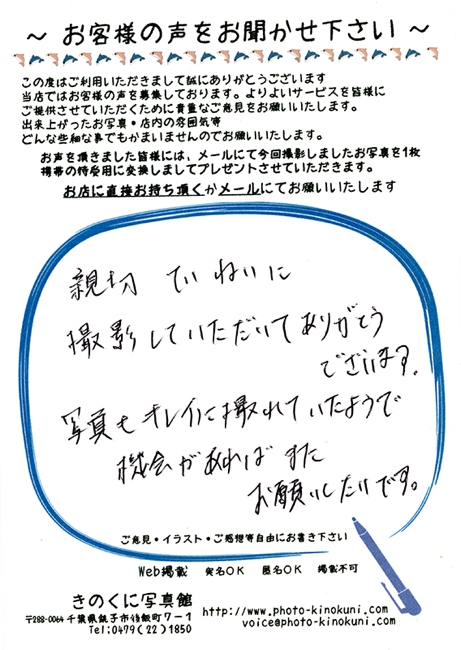 ～ お客様の声をお聞かせ下さい ～
この度はご利用いただきまして誠にありがとうございます
当店ではお客様の声を募集しております。よりよいサービスを皆様に
ご提供させていただくために貴重なご意見をお願いいたします。
出来上がったお写真・店内の雰囲気等
どんな些細な事でもかまいませんのでお願いいたします。
お声を頂きました皆様には、メールにて今回撮影しましたお写真を1枚
携帯の待受用に変換しましてプレゼントさせていただきます。
お店に直接お持ち頂くかメールにてお願いいたします
親切 ていねいに
撮影していただいてありがとう
ございます。
写真もキレイに撮れていたようで
機会があればまた
お願いしたいです。
ご意見・イラスト・ご感想等自由にお書き下さい
Web掲載 実名OK 匿名OK 掲載不可
きのくに写真館
〒288-0064 千葉県銚子市後飯町7－1
Tel:0479(22)1850
http://www.photo-kinokuni.com/
voice@photo-kinokuni.com